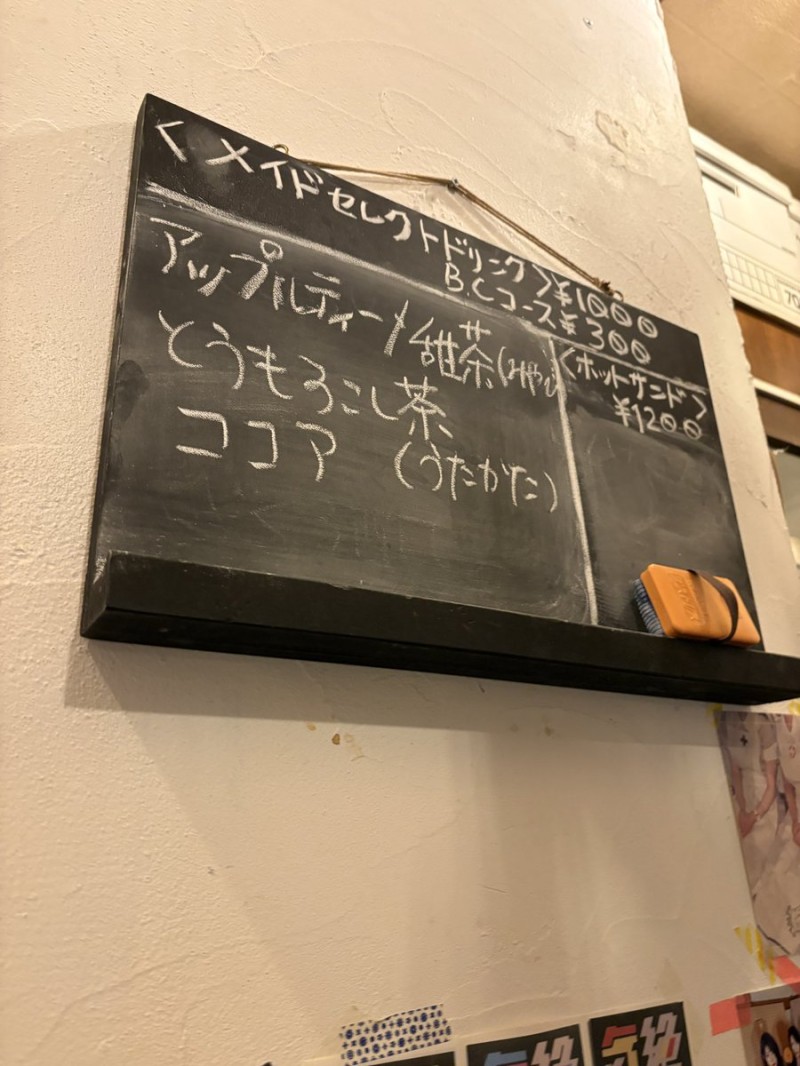 <メイドセレクトドリンク>¥1000
B.Cコース¥300
アップルティー/甜茶(みやび
とうもろこし茶
ココア (うたかた)
<ホットサンド>
¥1200
70